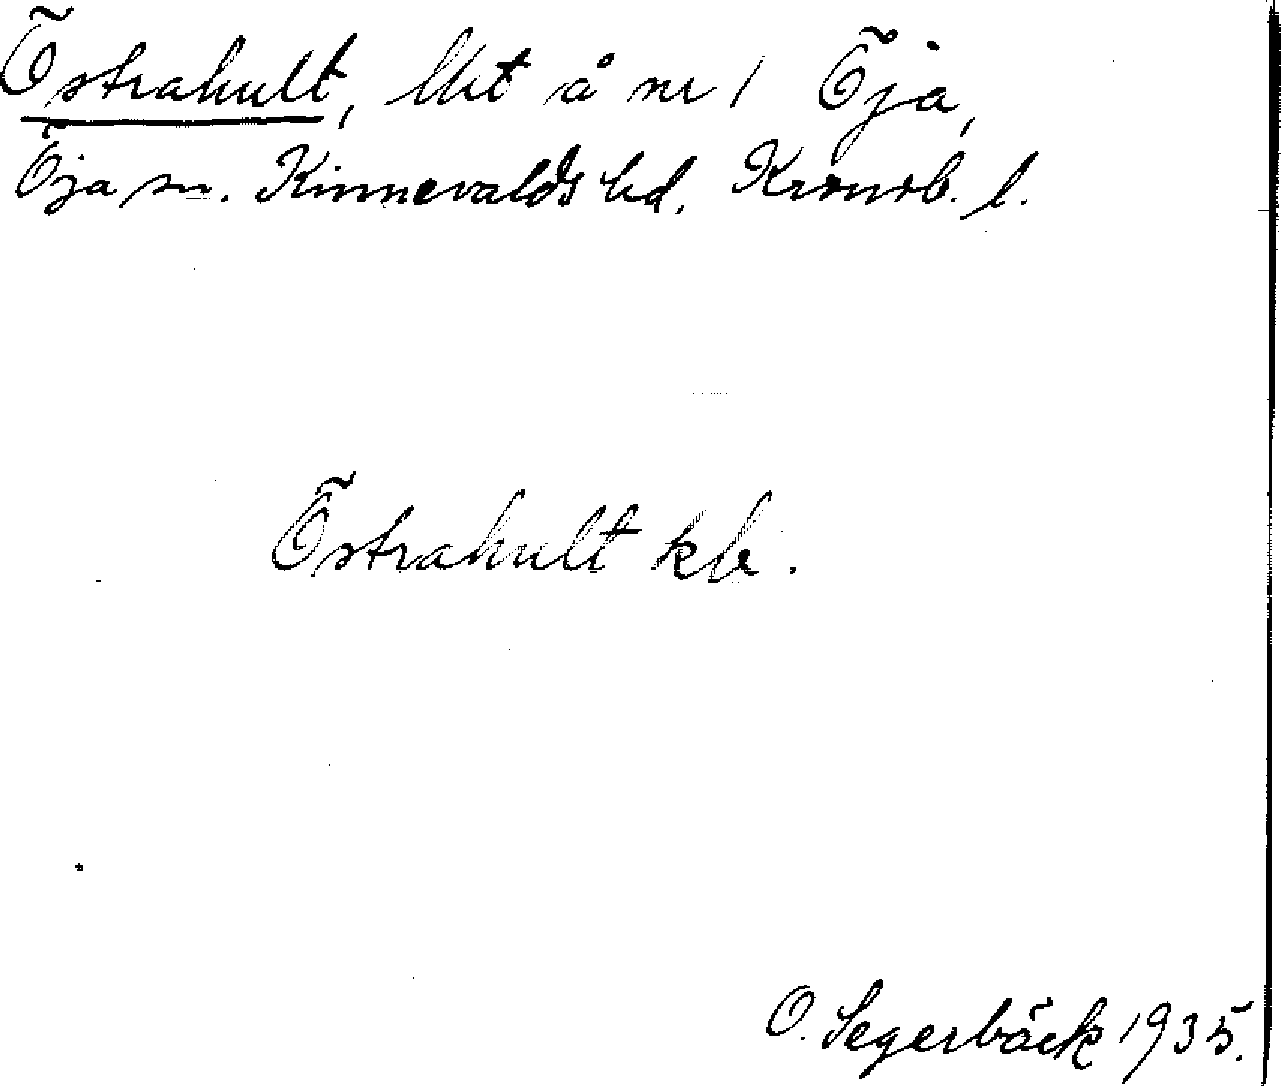 Östrahult, lht å nr 1 Öja,
Öja sn. Kinnevalds hd. Kronob. l.
Östrahult kb.
O. Segerbäck 1935.